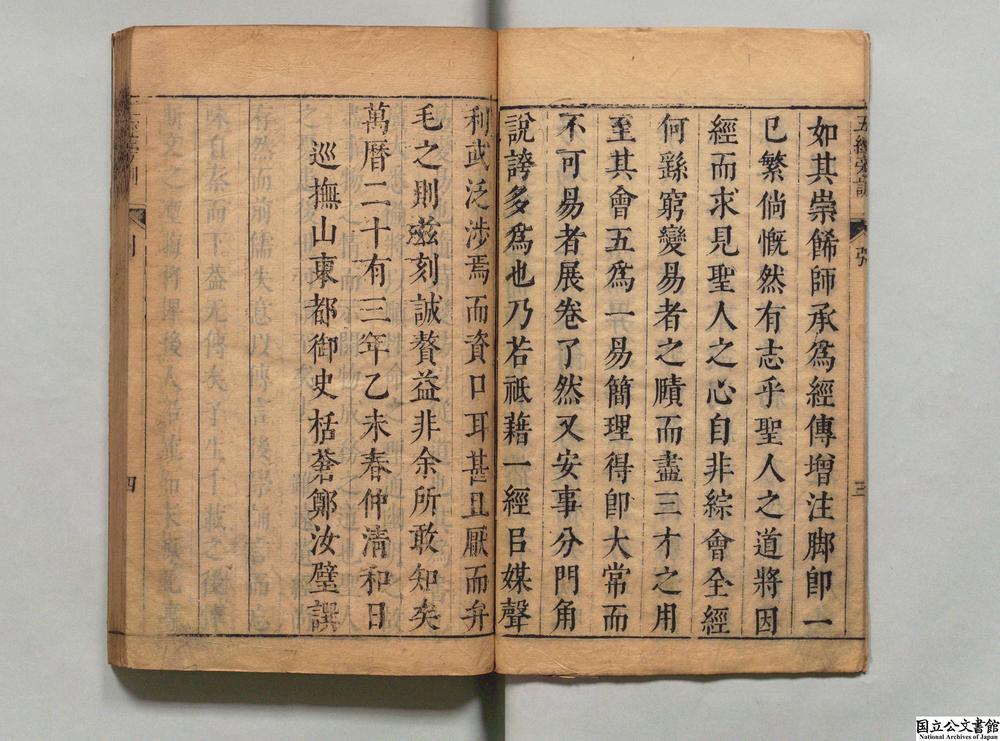 如其崇餙師承為經傳增注脚卽一
已繁倘慨然有志乎聖人之道將因
經而求見聖人之心自非綜會全經
何繇窮變易者之賾而盡三才之用
至其會五為一易簡理得卽大常而
不可易者展卷了然又安事分門角
說誇多為也乃若祗藉一經㠯媒聲
利武泛涉焉而資口耳甚且厭而弁
毛之則茲刻誠贅益非余所敢知矣
萬曆二十有三年乙未春仲清和日
巡撫山東都御史栝蒼鄭汝璧譔
三
四
国立公文書館
National Archives of Japan